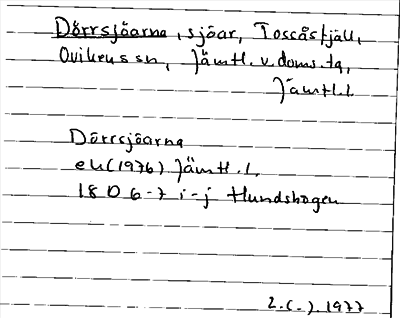 Dörrsjöarna, sjöar, Tossåsfjäll,
Ovikens sn, Jämtl. v. doms. tg,
Jämtl. l.
Dörrsjöarna
ek (1976) Jämtl. l.
18D 6-7 i-j Hundshögen
2.(-).1977